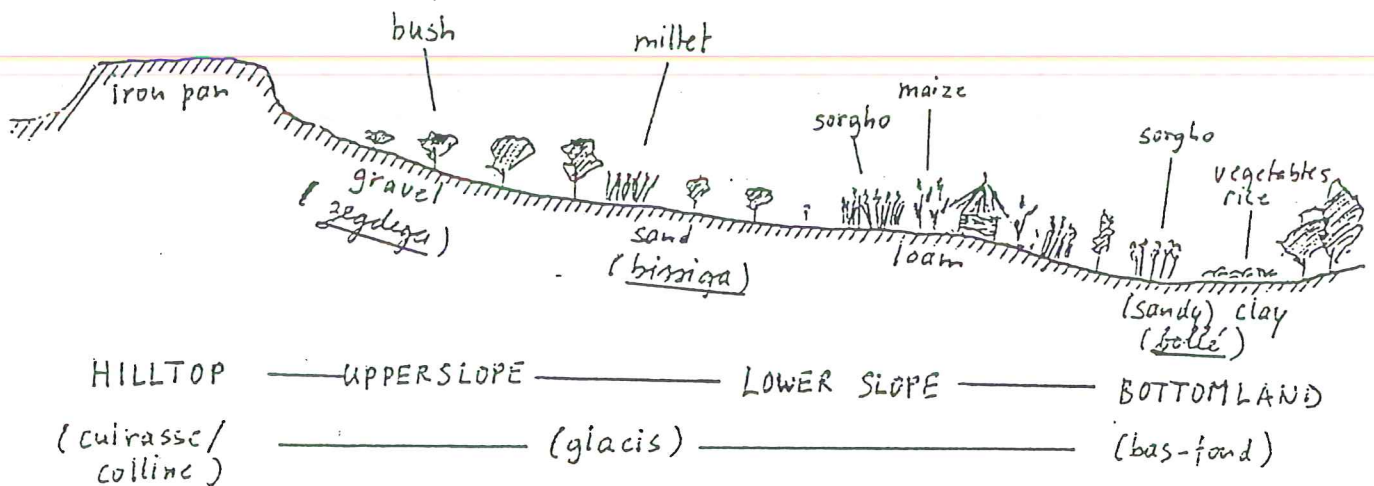 bush
millet
iron pan
maize
sorgho
sorgho
vegetables
rice
gravel
(zegdega)
sand
(bissiga)
loam
(sandy) clay
(bollé)
HILLTOP — UPPERSLOPE — LOWER SLOPE — BOTTOMLAND
(cuirasse/
colline) — (glacis) — (bas-fond)